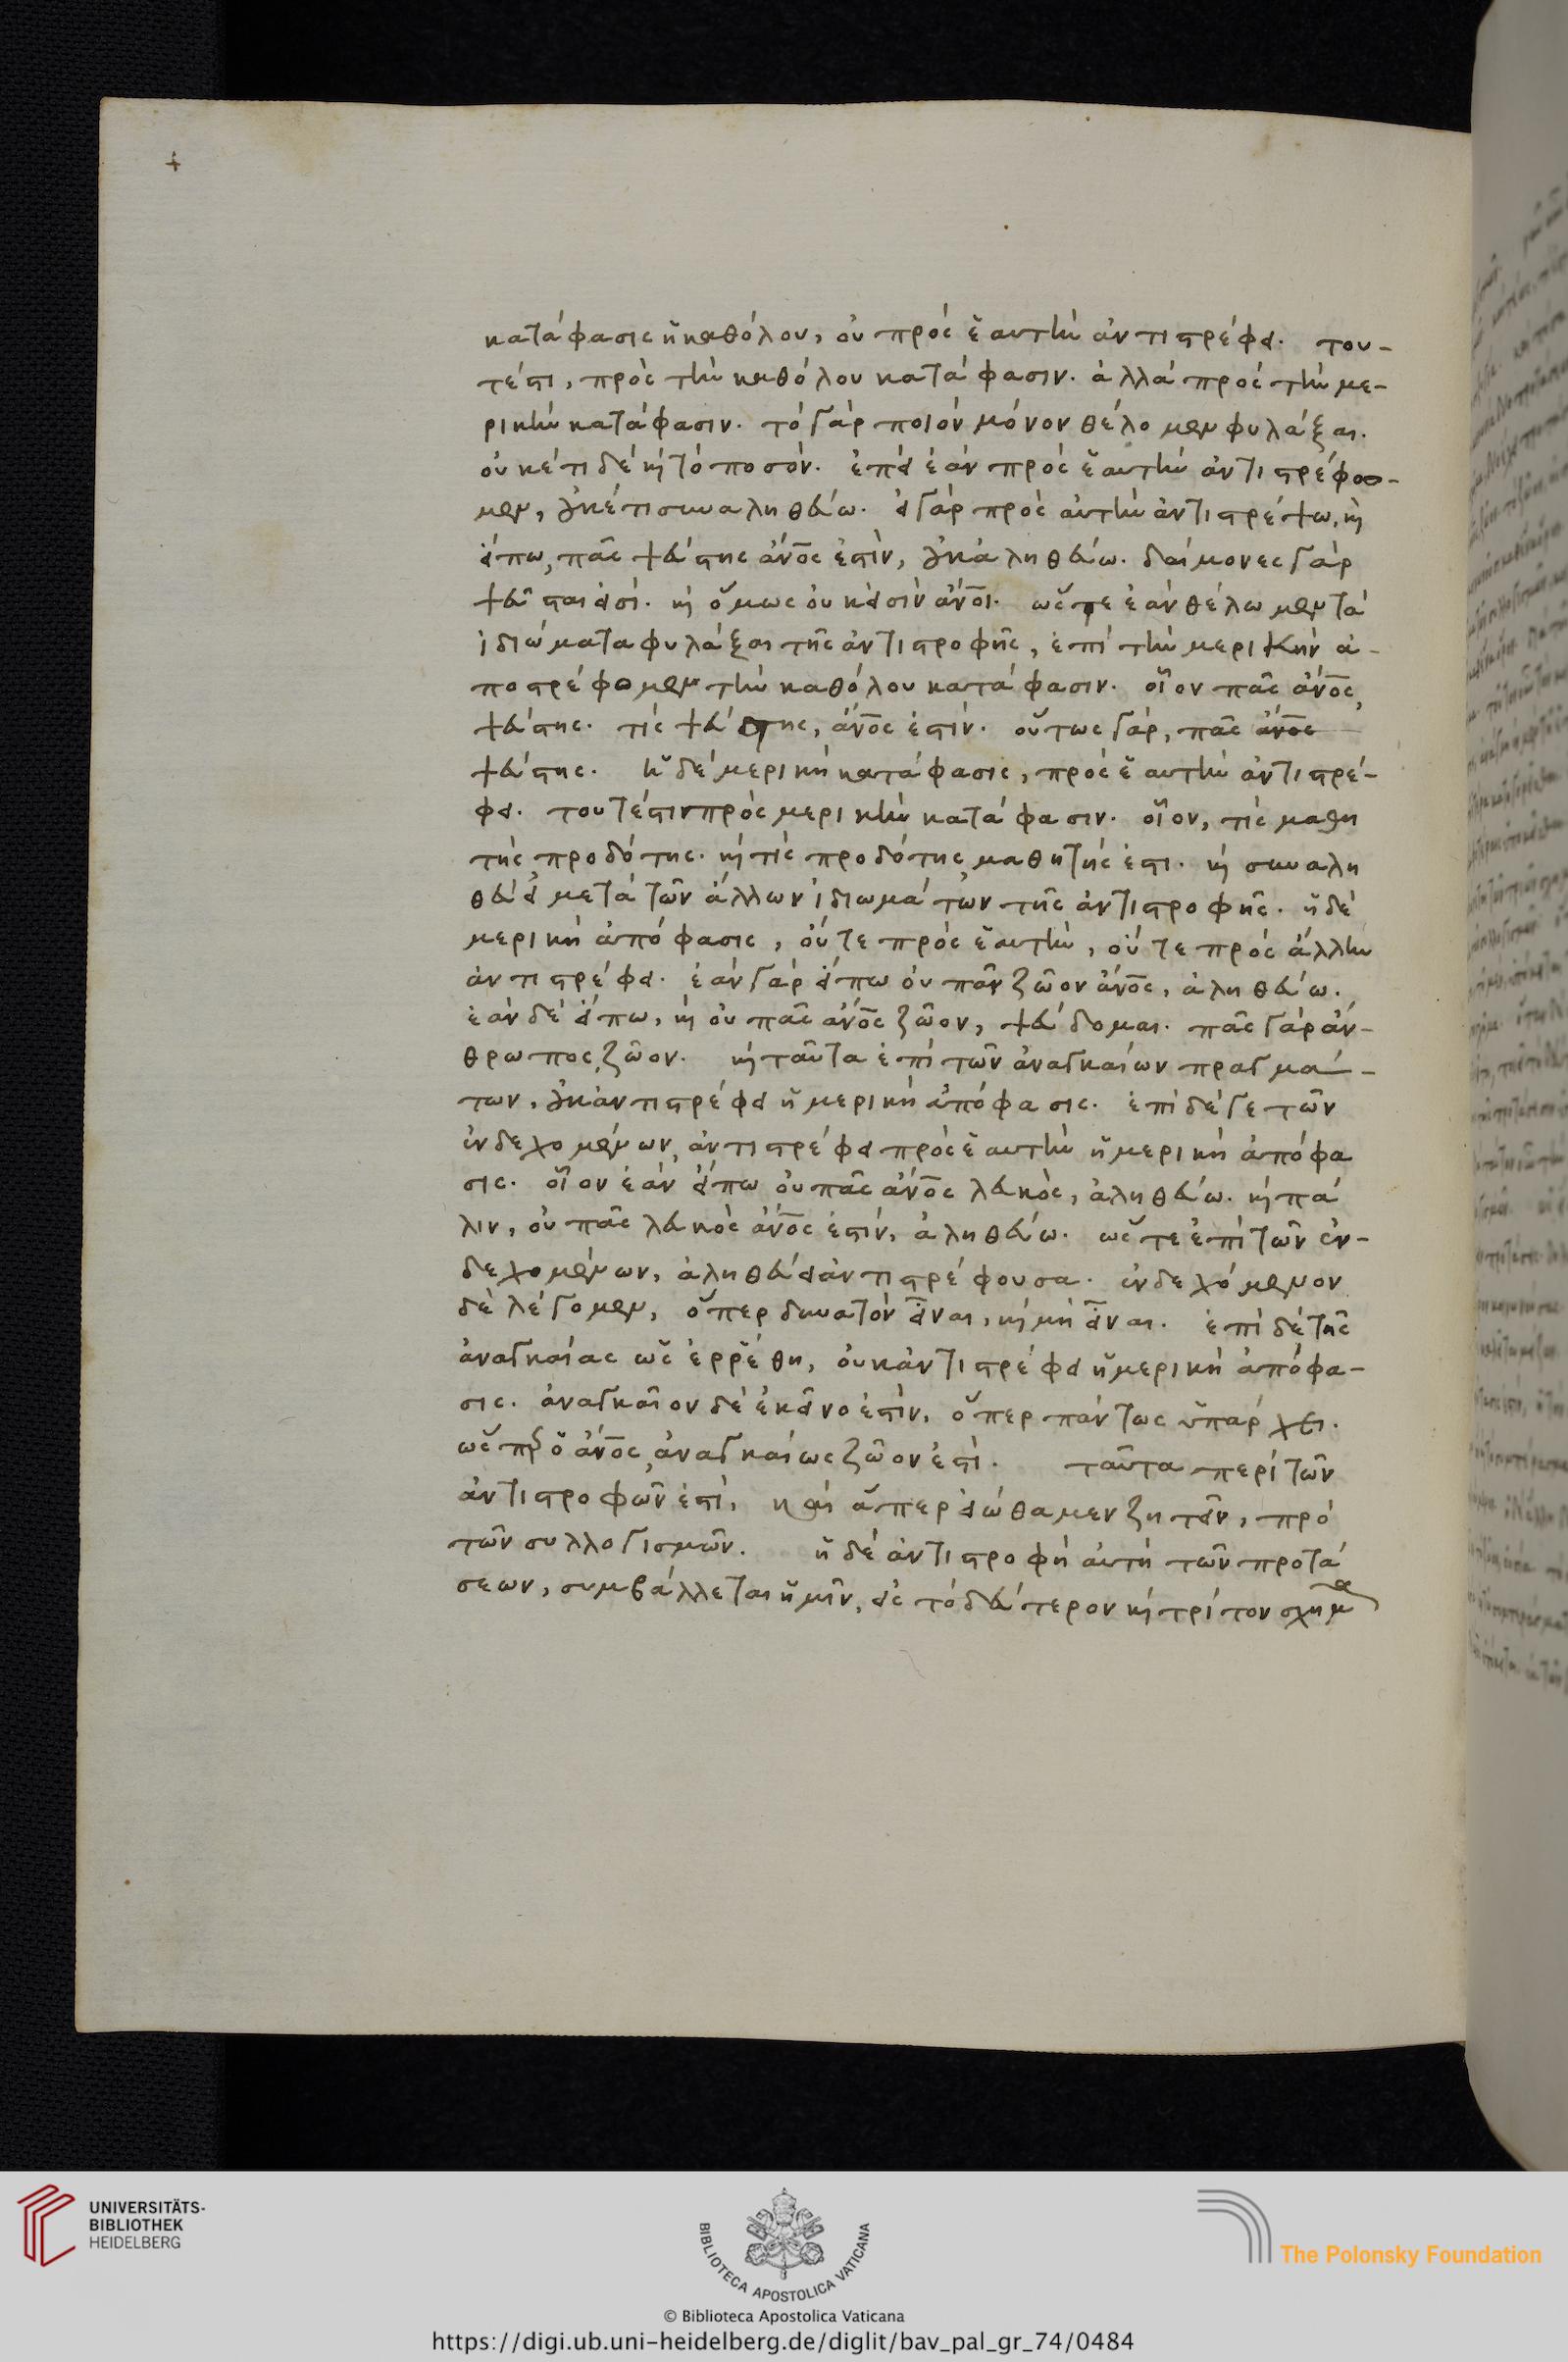 +
κατάφασις ἡ καθόλου, οὐ πρὸς ἑαυτὴν ἀντιστρέφει. του-
τέστι, πρὸς τὴν καθόλου κατάφασιν. ἀλλὰ πρὸς τὴν με-
ρικὴν κατάφασιν. τὸ γὰρ ποιὸν μόνον θέλομεν φυλάξαι.
οὐκέτι δὲ καὶ τὸ ποσόν. ἐπεὶ ἐὰν πρὸς ἑαυτὴν ἀντιστρέφο-
μεν, οὐκέτι συναληθεύω. εἰ γὰρ πρὸς αὐτὴν ἀντιστρέψω, καὶ
εἴπω, πᾶς ψεύστης ἄνος ἐστὶν, οὐκ ἀληθεύω. δαίμονες γὰρ
ψεῦσταί εἰσί. καὶ ὅμως οὐκ εἰσὶν ἄνοι. ὥστε ἐὰν θέλωμεν τὰ
ἰδιώματα φυλάξαι τῆς ἀντιστροφῆς, ἐπὶ τὴν μερικὴν ἀ-
ποστρέφομεν τὴν καθόλου κατάφασιν. οἷον πᾶς ἄνος,
ψεύστης. τίς ψεύστης, ἄνος ἐστίν. οὕτως γάρ, πᾶς ἄνος
ψεύστης. ἡ δὲ μερικὴ κατάφασις, πρὸς ἑαυτὴν ἀντιστρέ-
φει. τουτέστιν πρὸς μερικὴν κατάφασιν. οἷον, τίς μαθη
τὴς προδότης. καὶ τίς προδότης μαθητής ἐστι. καὶ συναλη
θεύει μετὰ τῶν ἄλλων ἰδιωμάτων τῆς ἀντιστροφῆς. ἡ δὲ
μερικὴ ἀπόφασις, οὔτε πρὸς ἑαυτὴν, οὔτε πρὸς ἄλλην
ἀντιστρέφει. ἐὰν γὰρ εἴπω οὐ πᾶν ζῶον ἄνος, ἀληθεύω.
ἐὰν δὲ εἴπω, καὶ οὐ πᾶς ἄνος ζῶον, ψεύδομαι. πᾶς γὰρ ἄν-
θρωπος, ζῶον. καὶ ταῦτα ἐπὶ τῶν ἀναγκαίων πραγμά-
των, οὐκ ἀντιστρέφει ἡ μερικὴ ἀπόφασις. ἐπὶ δέ γε τῶν
ἐνδεχομένων, ἀντιστρέφει πρὸς ἑαυτὴν ἡ μερικὴ ἀπόφα
σις. οἷον ἐὰν εἴπω οὐ πᾶς ἄνος λευκὸς, ἀληθεύω. καὶ πά
λιν, οὐ πᾶς λευκὸς ἄνος ἐστίν, ἀληθεύω. ὥστε ἐπὶ τῶν ἐν-
δεχομένων, ἀληθεύει ἀντιστρέφουσα. ἐνδεχόμενον
δὲ λέγομεν, ὅπερ δυνατὸν εἶναι, καὶ μὴ εἶναι. ἐπὶ δὲ τῆς
ἀναγκαίας ὡς ἐρρέθη, οὐκ ἀντιστρέφει ἡ μερικὴ ἀπόφα-
σις. ἀναγκαῖον δὲ ἐκεῖνο ἐστὶν, ὅπερ πάντως ὑπάρχει.
ὥσπερ ὁ ἄνος, ἀναγκαίως ζῶον ἐστί. ταῦτα περὶ τῶν
ἀντιστροφῶν ἐστὶ, καὶ ἅπερ εἰώθαμεν ζητεῖν, πρὸ
τῶν συλλογισμῶν. ἡ δὲ ἀντιστροφὴ αὐτὴ τῶν προτά
σεων, συμβάλλεται ἡμῖν, εἰς τὸ δεύτερον καὶ τρίτον σχῆμα
UNIVERSITÄTS-
BIBLIOTHEK
HEIDELBERG
BIBLIOTECA APOSTOLICA VATICANA
The Polonsky Foundation
© Biblioteca Apostolica Vaticana
https://digi.ub.uni-heidelberg.de/diglit/bav_pal_gr_74/0484